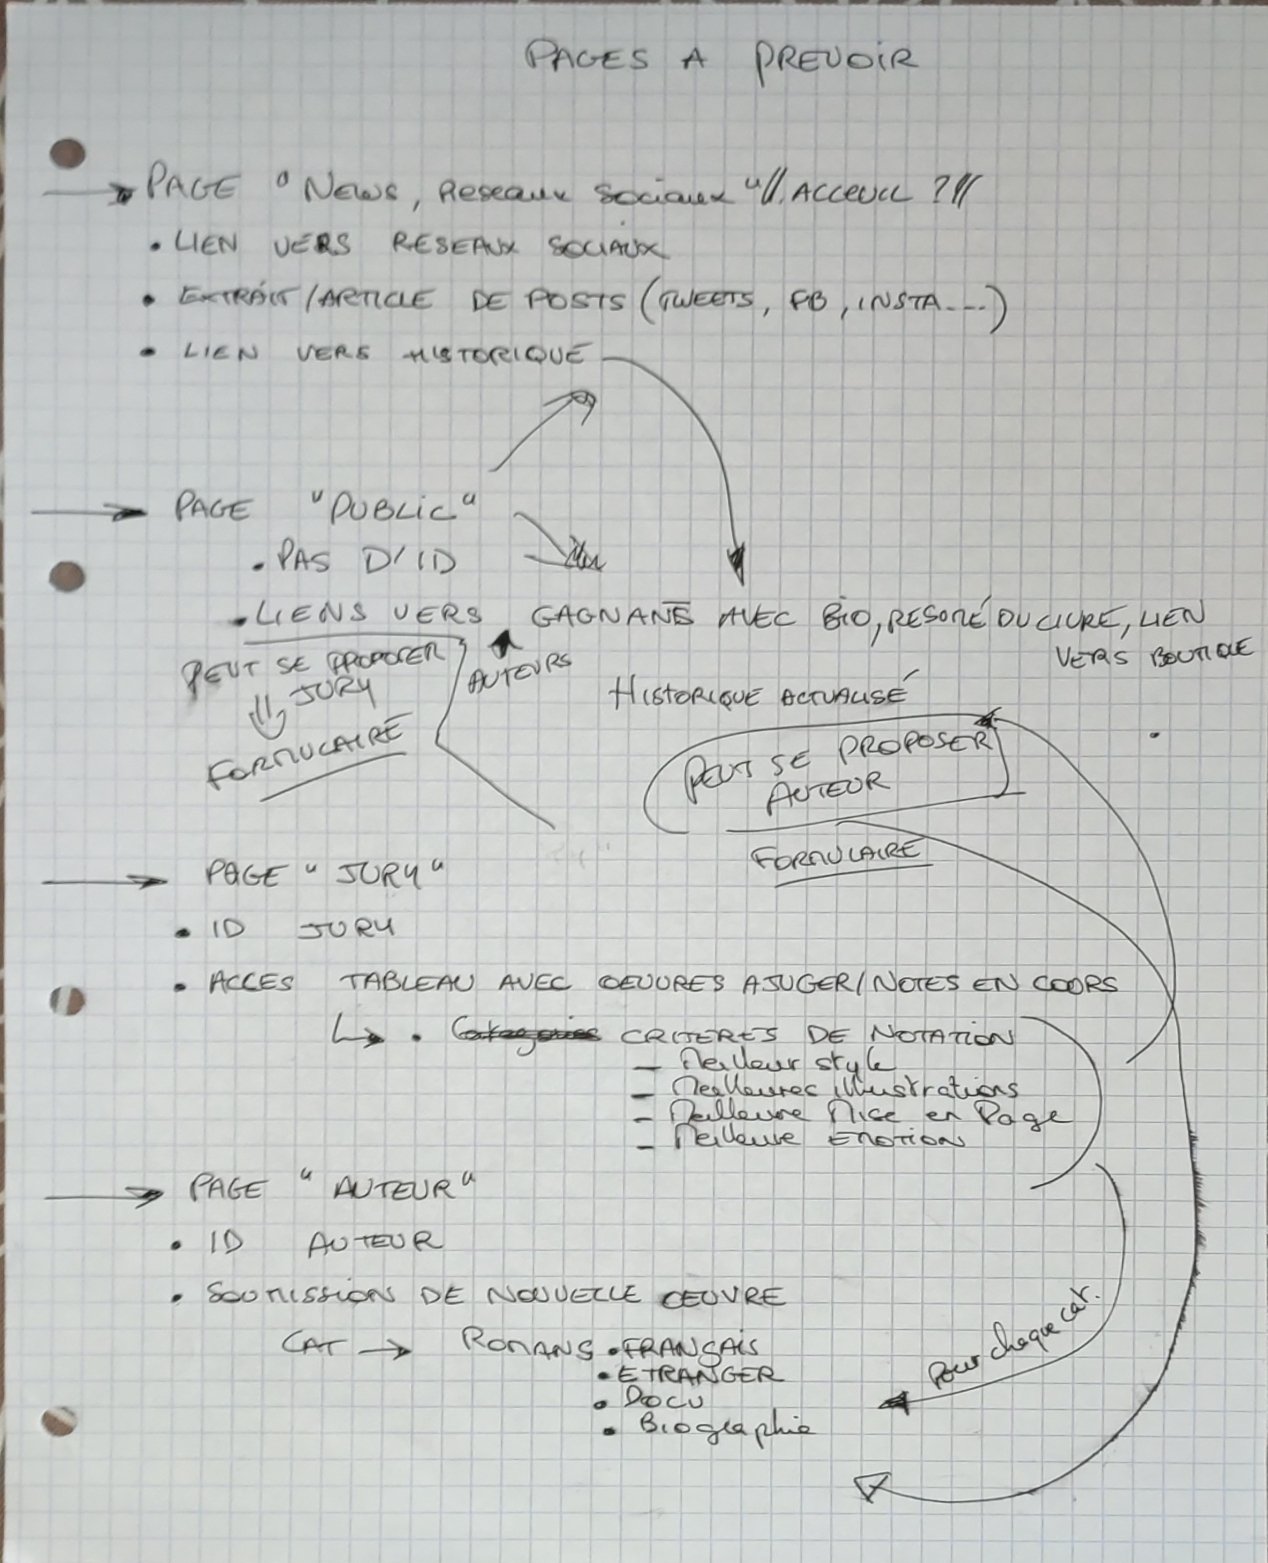 PAGES A PREVOIR
PAGE "News, Reseaux Sociaux" //ACCEUIL ?//
• LIEN VERS RESEAUX SOCIAUX
• EXTRAIT/ARTICLE DE POSTS (TWEETS, FB, INSTA...)
• LIEN VERS HISTORIQUE
PAGE "PUBLIC"
• PAS D'ID
• LIENS VERS GAGNANTS AVEC BIO, RESUMÉ DU LIVRE, LIEN
VERS BOUTIQUE
AUTEURS
PEUT SE PROPOSER
JURY
FORMULAIRE
HISTORIQUE ACTUALISÉ
PEUT SE PROPOSER
AUTEUR
FORMULAIRE
PAGE "JURY"
• ID JURY
• ACCES TABLEAU AVEC OEUVRES A JUGER/NOTES EN COURS
• Categories CRITERES DE NOTATION
– Meilleur style
– Meilleures illustrations
– Meilleure Mise en Page
– Meilleure EMOTION
PAGE "AUTEUR"
• ID AUTEUR
• SOUMISSION DE NOUVELLE OEUVRE
CAT → ROMANS • FRANÇAIS
• ETRANGER
• DOCU
• Biographie
Pour chaque cat.